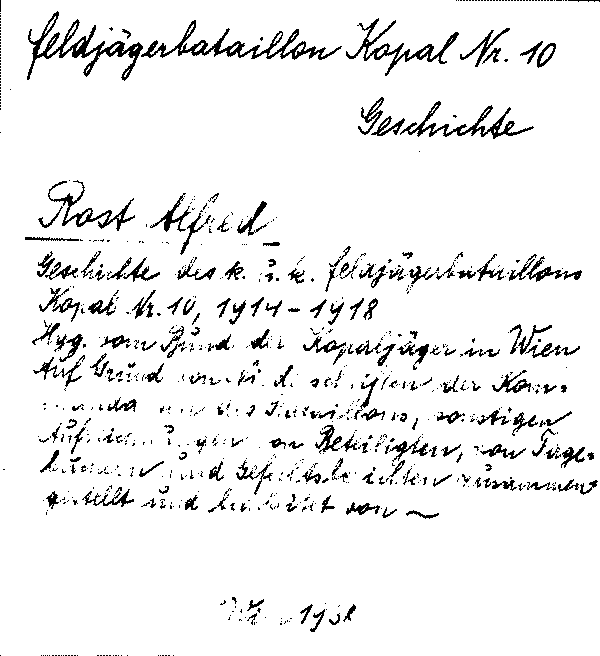 Feldjägerbataillon Kopal Nr. 10
Geschichte
Rost Alfred
Geschichte des k. u. k. Feldjägerbataillons
Kopal Nr. 10, 1914-1918
Hgg. vom Bund der Kopaljäger in Wien
Auf Grund von der Kom-
des Bataillons, sonstigen
Aufzeichnungen von Beteiligten, von Tage-
büchern und Gefechtsberichten zusammen-
gestellt und bearbeitet von ~
Wien